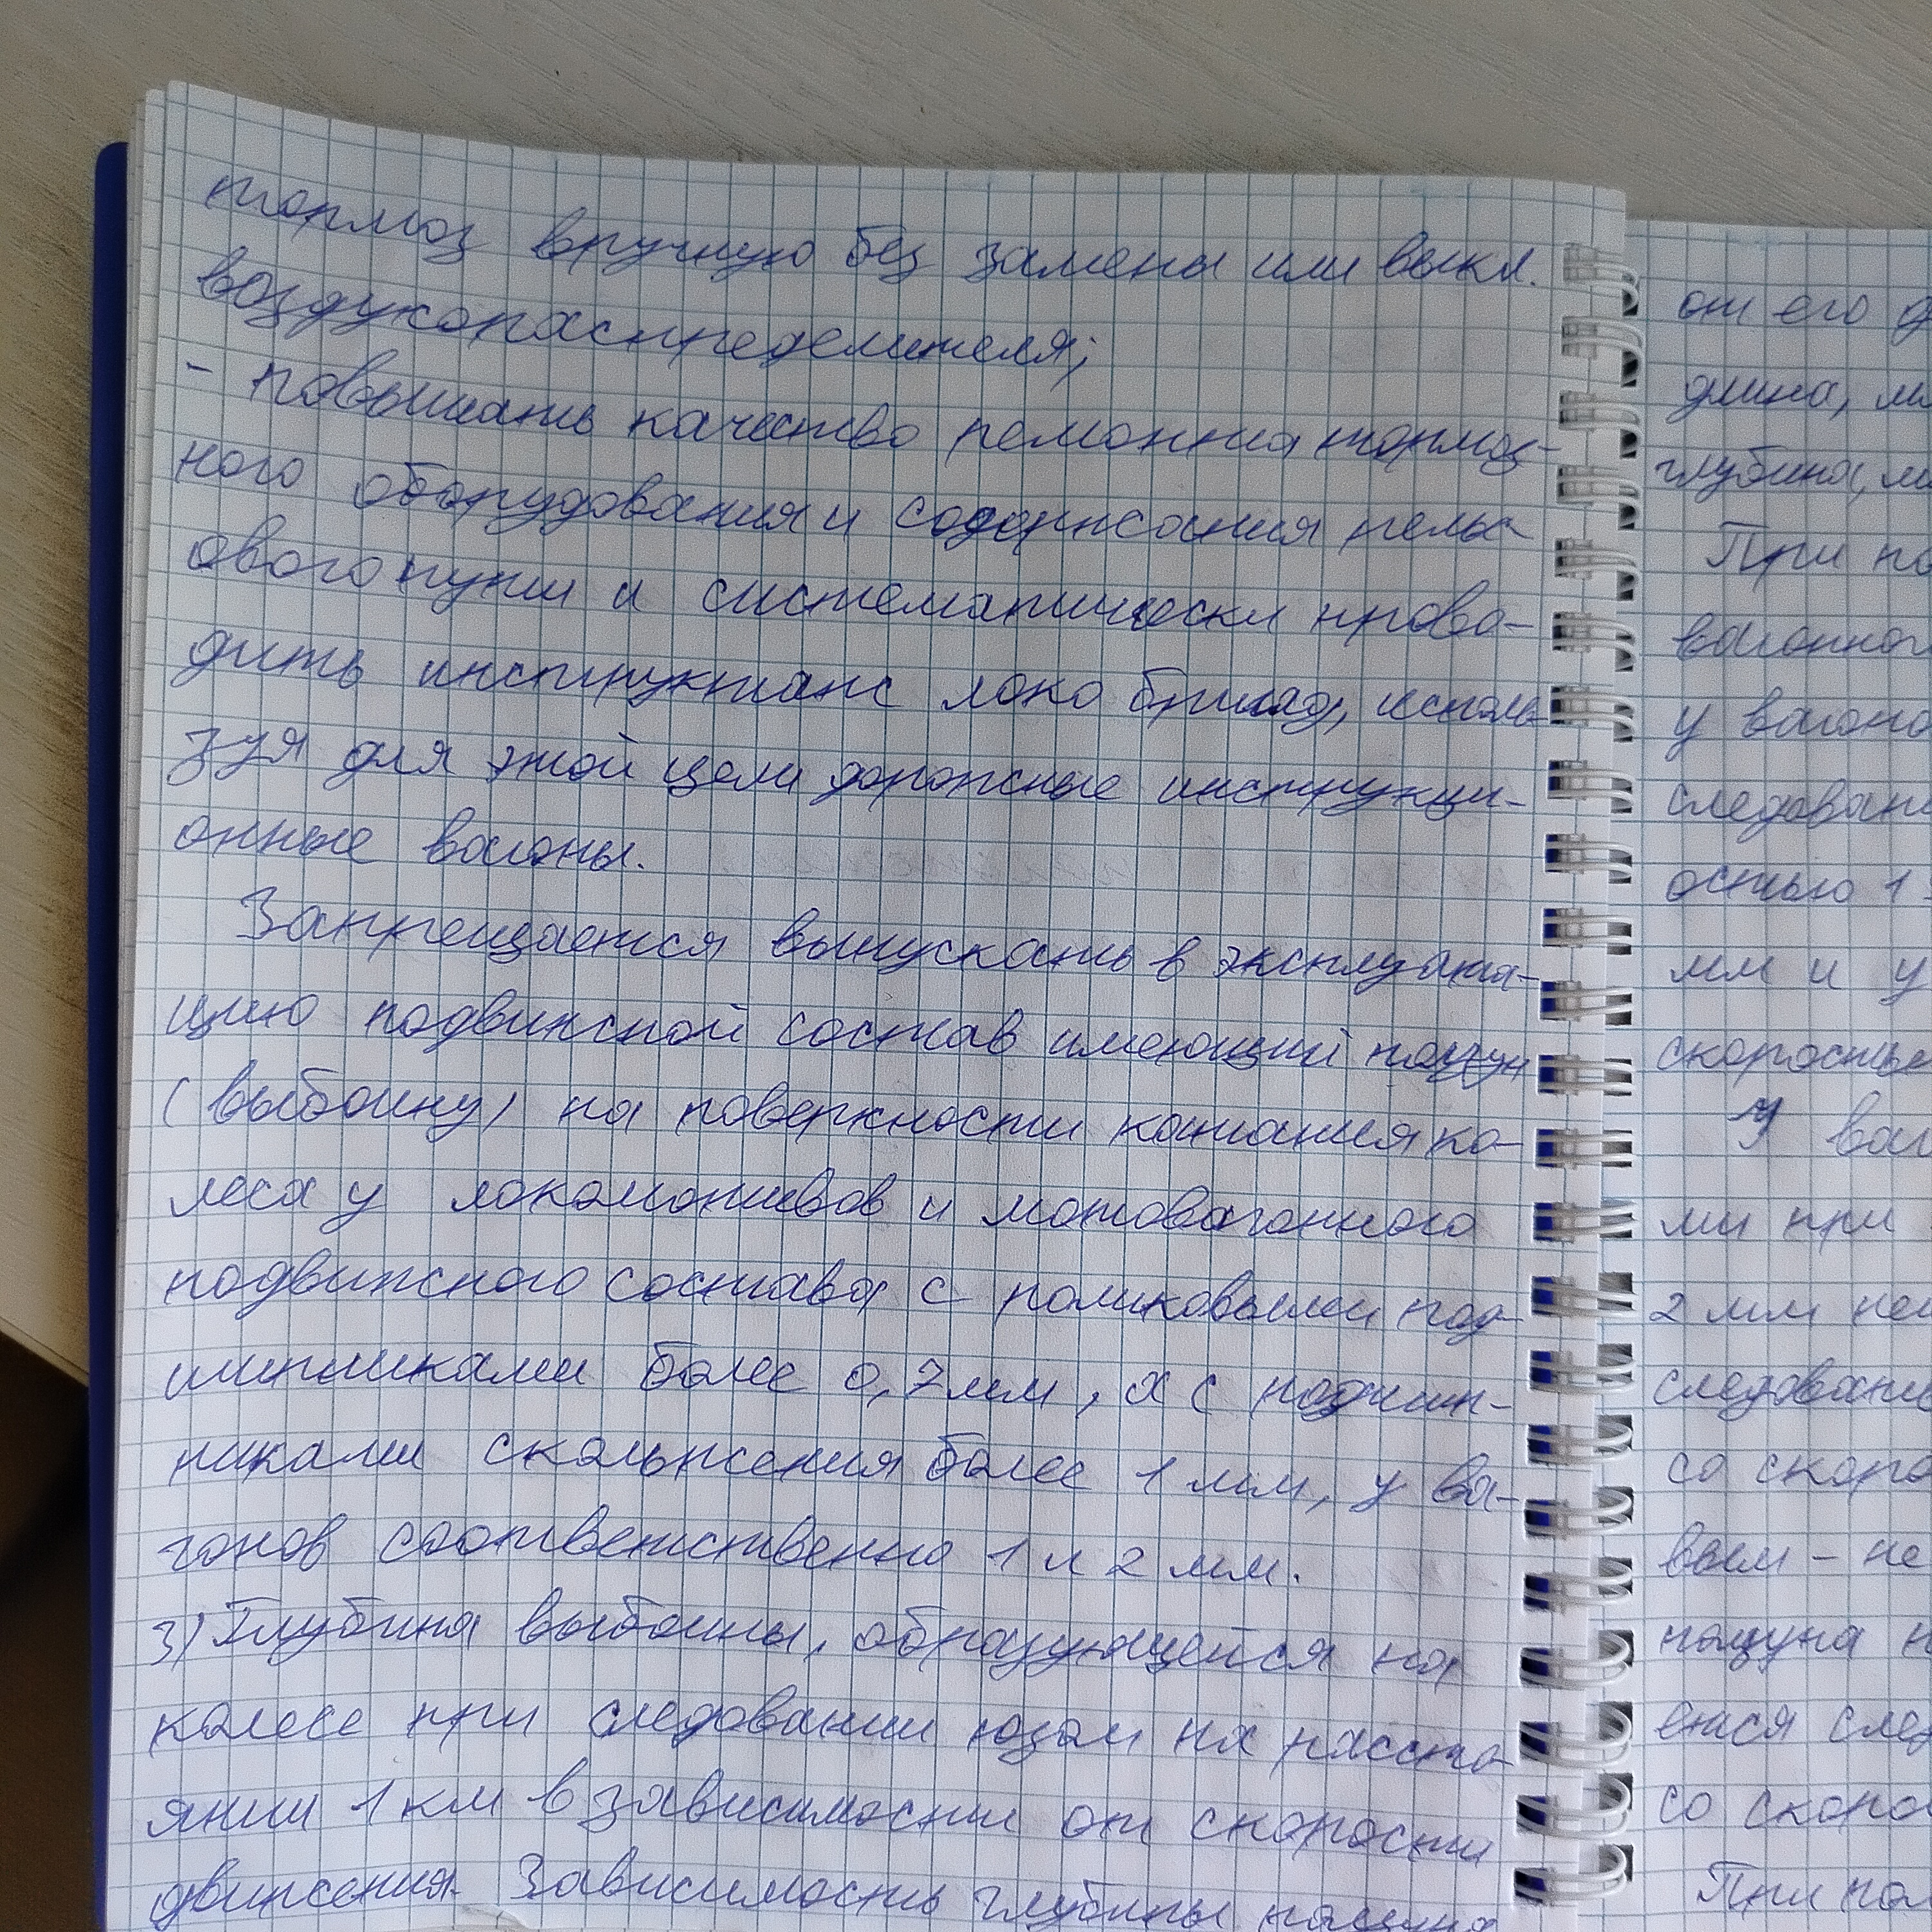 тормоз вручную без замены или выкл.
воздухораспределителя;
- повышать качество ремонта тормоз-
ного оборудования и содержания рельс
ового пути и систематически прово-
дить инструктаж локо бригад, исполь
зуя для этой цели дорожные инструкци-
онные вагоны.
Запрещается выпускать в эксплуата-
цию подвижной состав имеющий ползун
(выбоину) на поверхности катания ко-
леса у локомотивов и мотовагонного
подвижного состава с роликовыми под-
шипниками более 0,7 мм, а с подшип-
никами скольжения более 1 мм, у ва-
гонов соответственно 1 и 2 мм.
3) Глубина выбоины, образующейся на
колесе при следовании юзом на рассто-
янии 1 км в зависимости от скорости
движения. Зависимость глубины ползуна
от его д
длина, м
глубина, м
При по
вагонног
у вагоно
следован
остью 1
мм и у
скоростью
У ваг
ми при
2 мм не
следовани
со скоро
вым - не
ползуна н
ется след
со скоро
При по